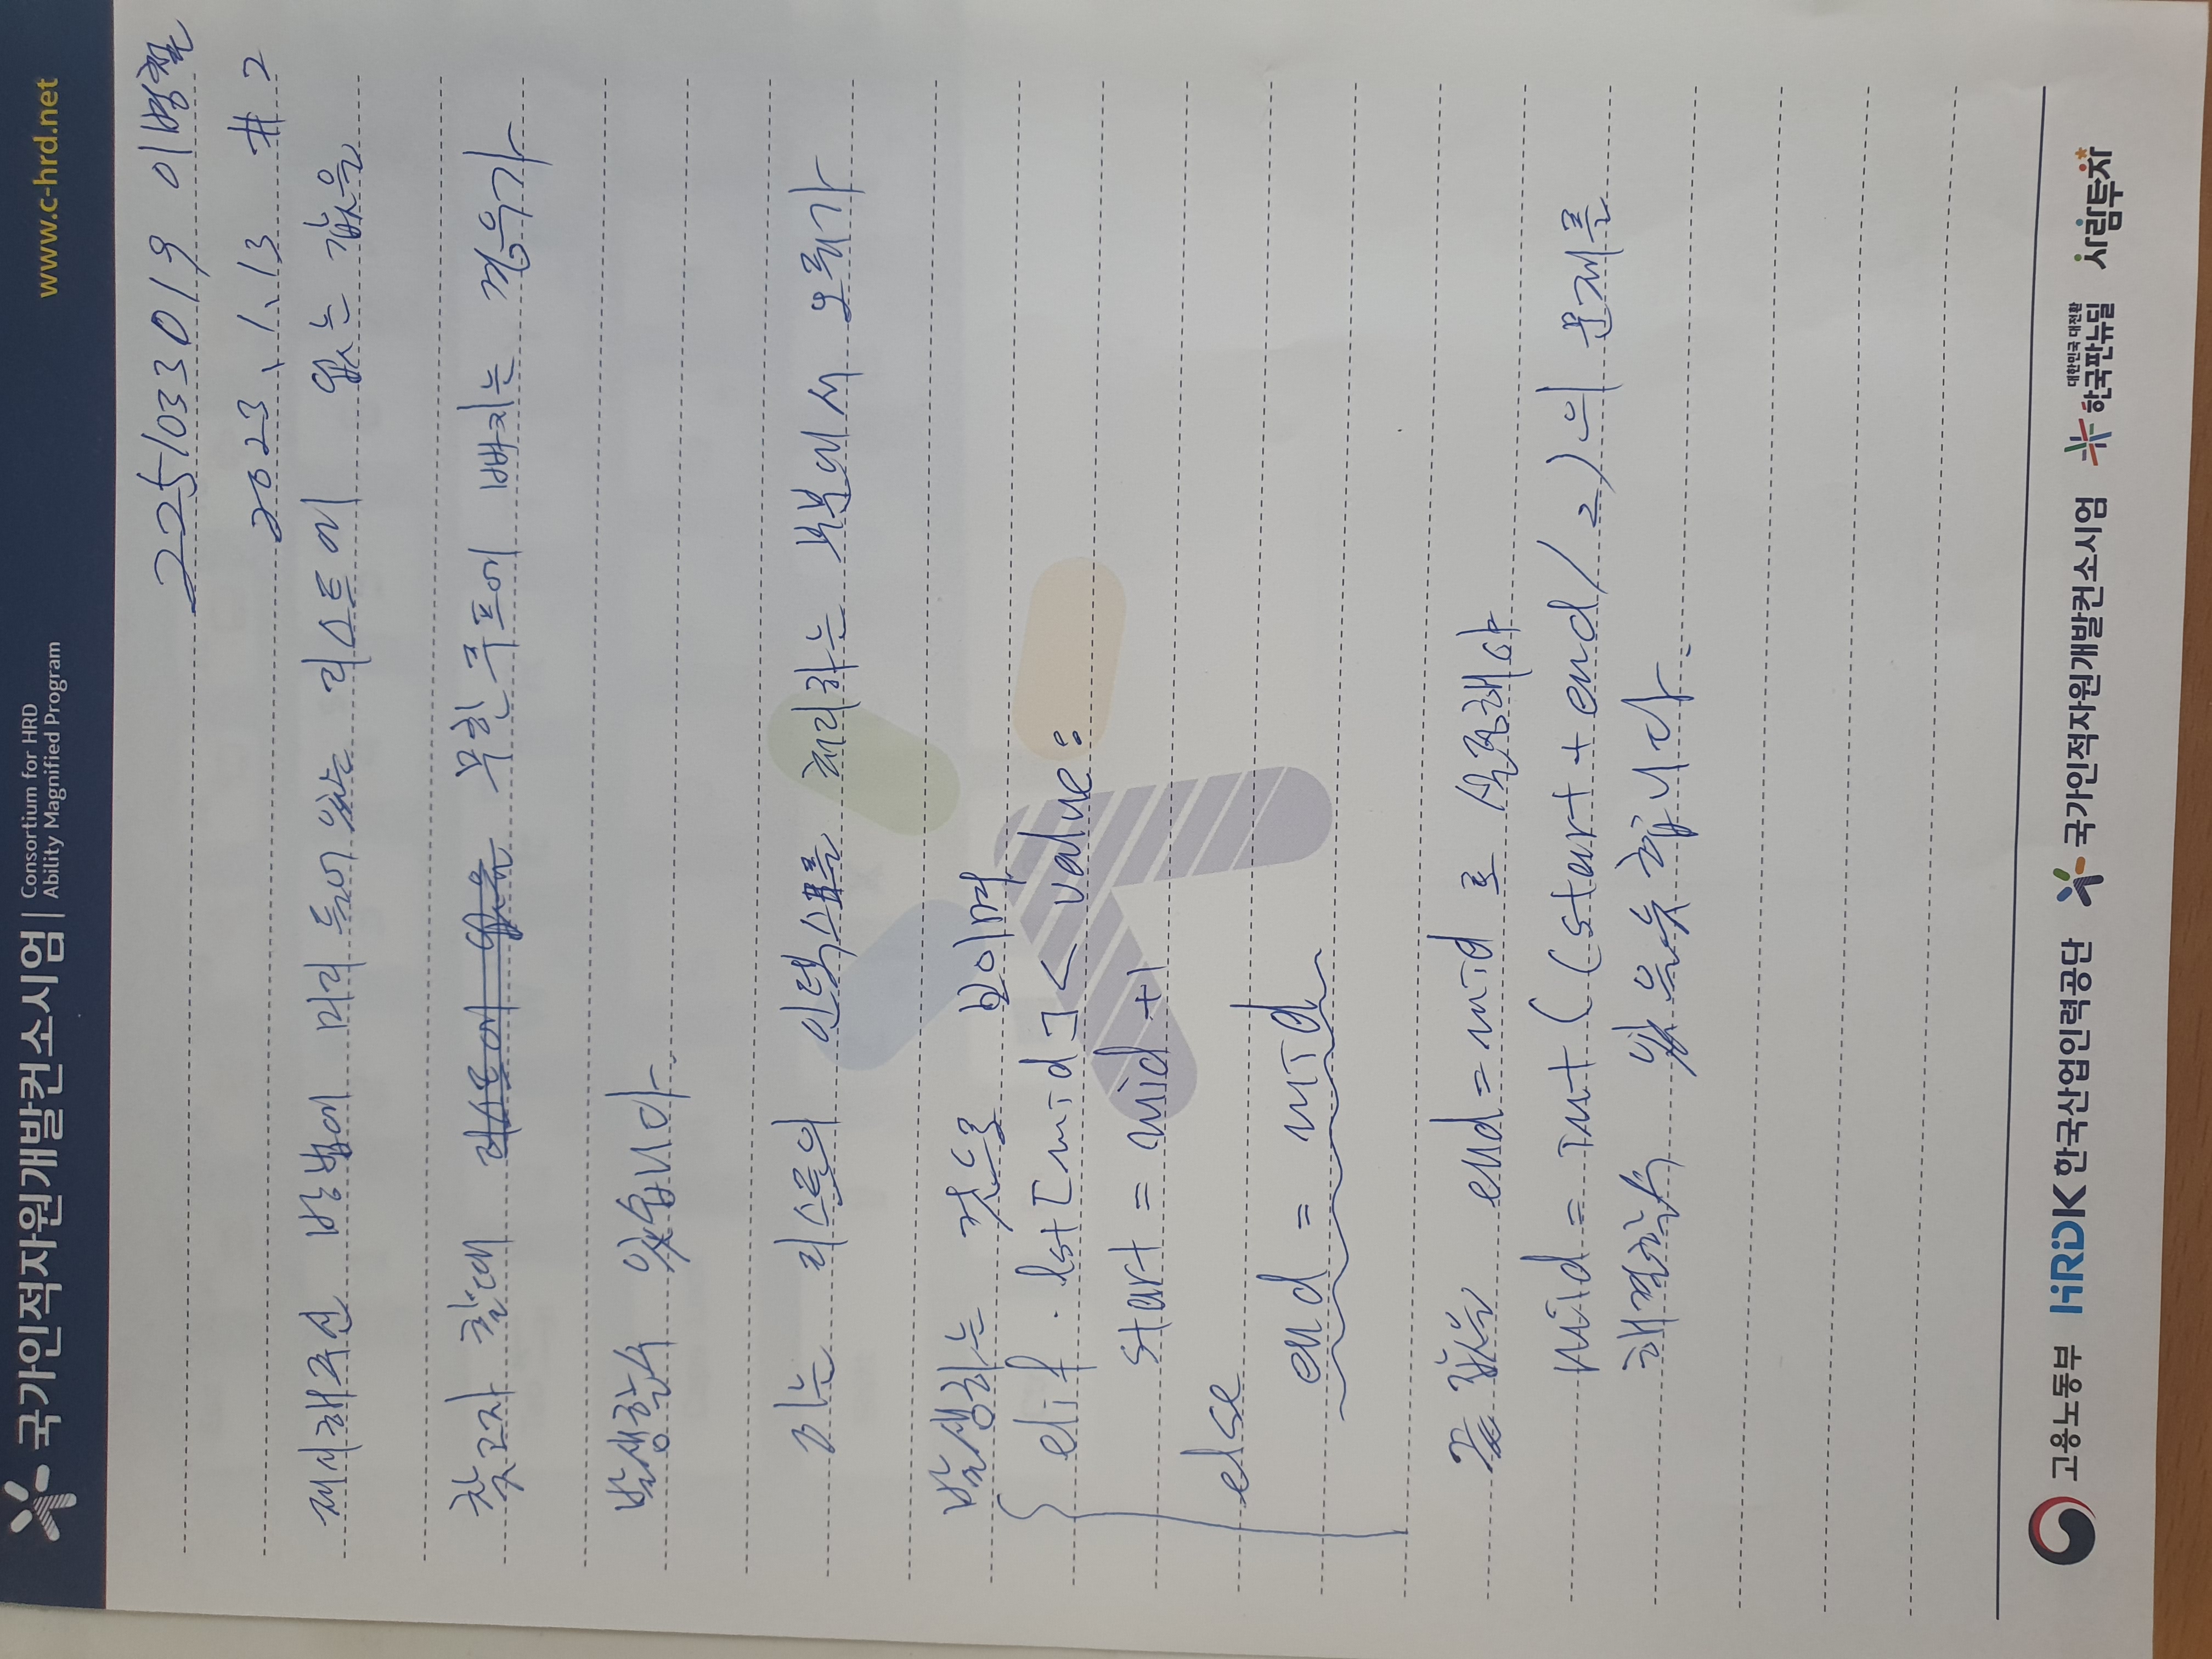 국가인적자원개발컨소시엄 | Consortium for HRD
Ability Magnified Program
www.c-hrd.net
2251033019 이병철
2023. 1. 13 # 2
제시해주신 방법에 미리 들어 있는 리스트에 없는 값을
찾고자 할때 리스트에 없을 무한루프에 빠지는 경우가
발생할수 있습니다.
이는 리스트의 인덱스를 처리하는 부분에서 오류가
발생하는 것으로 보이며
elif . lst[mid] < value:
start = mid +1
else
end = mid
끝 값을 end = mid 로 설정해야
mid = int ( (start + end / 2 ) 의 문제를
해결할수 있을듯 합니다.
고용노동부 HRDK 한국산업인력공단 국가인적자원개발컨소시엄 대한민국 대전환 한국판뉴딜 사람투자